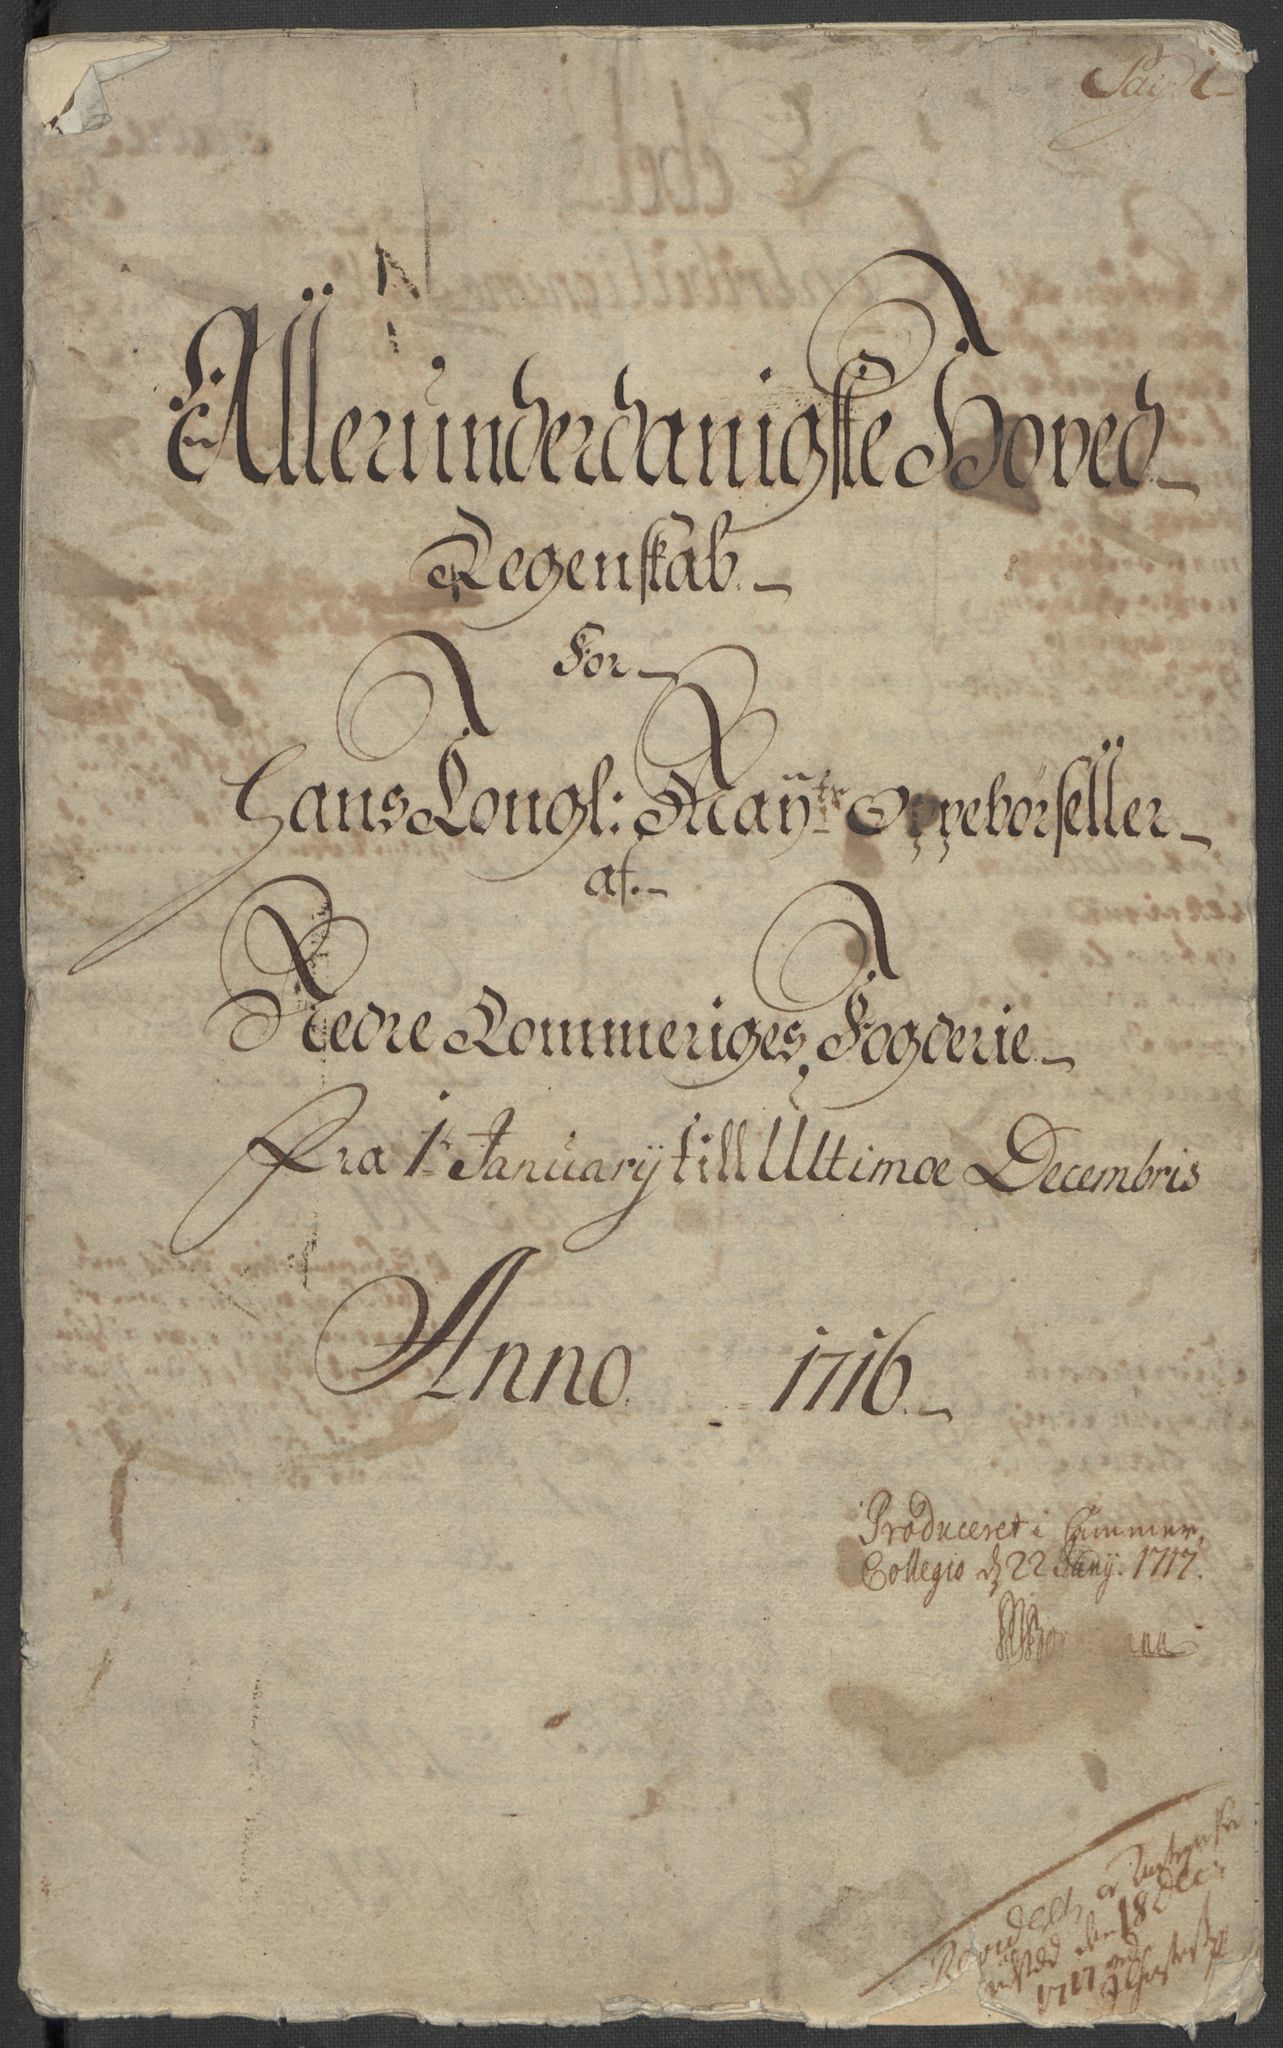 Pag: 1
Allerunderdanigste Hoved
Regenskab
For
Hans Kongl: Mayts Oppebørseller
af
Nedre Rommeriges Fogderie
fra 1 Januarij till Ultimoe Decembris
Anno 1716
Produceret i Cammer
Collegio d 22 Junij. 1717.
Revideret, er
den 18 Decr
1717